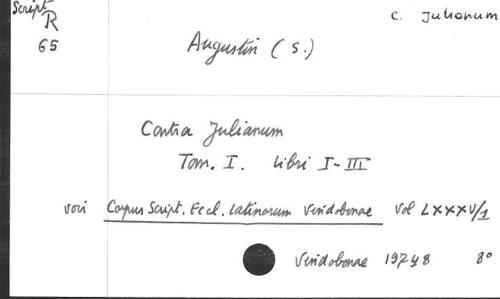 Script
R
65
c. Julianum
Augustin (S.)
Contra Julianum
Tom. I. Libri I-III
voir Corpus Script. Eccl. Latinorum Vindobonae Vol LXXXV/1
Vindobonae 8°